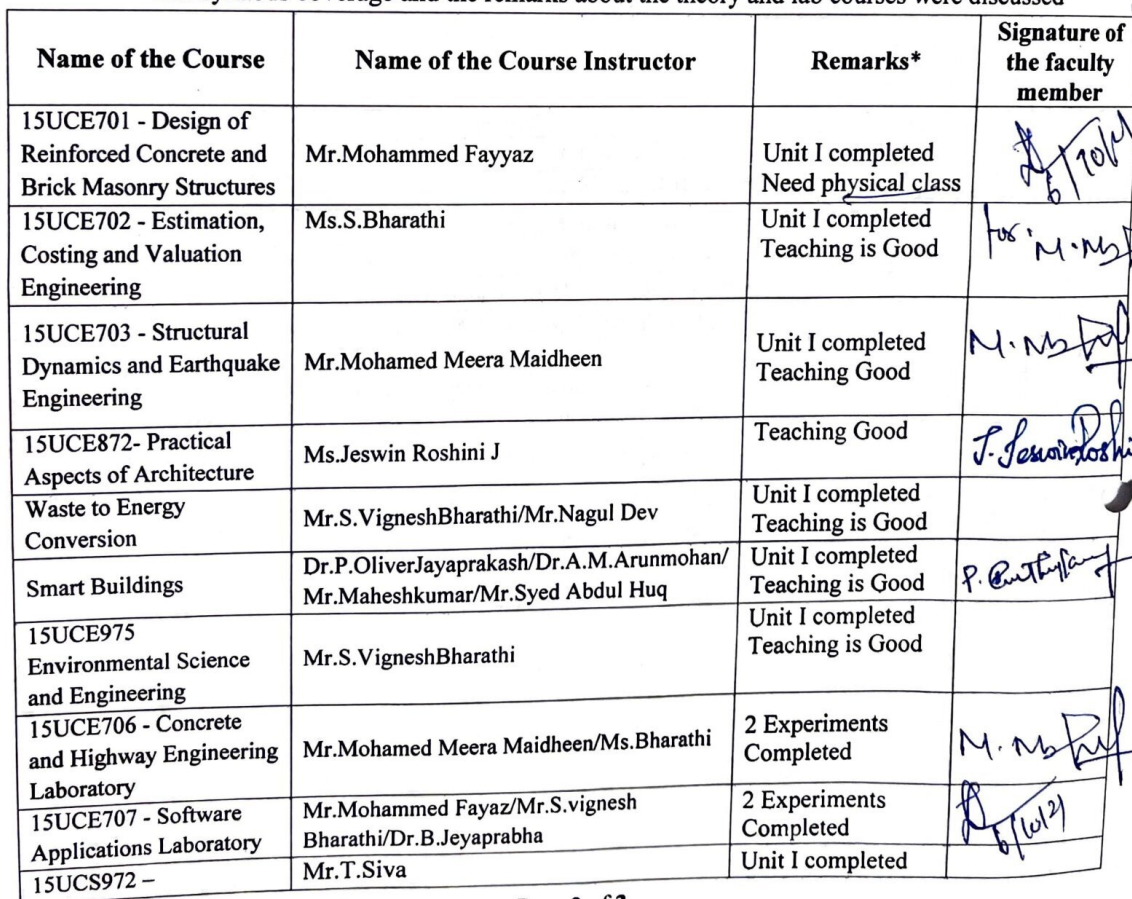 coverage and the remarks about the theory and lab courses were discussed
Name of the Course
Name of the Course Instructor
Remarks*
Signature of
the faculty
member
15UCE701 - Design of
Reinforced Concrete and
Brick Masonry Structures
Mr.Mohammed Fayyaz
Unit I completed
Need physical class
15UCE702 - Estimation,
Costing and Valuation
Engineering
Ms.S.Bharathi
Unit I completed
Teaching is Good
for
15UCE703 - Structural
Dynamics and Earthquake
Engineering
Mr.Mohamed Meera Maidheen
Unit I completed
Teaching Good
15UCE872- Practical
Aspects of Architecture
Ms.Jeswin Roshini J
Teaching Good
Waste to Energy
Conversion
Mr.S.VigneshBharathi/Mr.Nagul Dev
Unit I completed
Teaching is Good
Smart Buildings
Dr.P.OliverJayaprakash/Dr.A.M.Arunmohan/
Mr.Maheshkumar/Mr.Syed Abdul Huq
Unit I completed
Teaching is Good
15UCE975
Environmental Science
and Engineering
Mr.S.VigneshBharathi
Unit I completed
Teaching is Good
15UCE706 - Concrete
and Highway Engineering
Laboratory
Mr.Mohamed Meera Maidheen/Ms.Bharathi
2 Experiments
Completed
15UCE707 - Software
Applications Laboratory
Mr.Mohammed Fayaz/Mr.S.vignesh
Bharathi/Dr.B.Jeyaprabha
2 Experiments
Completed
6/10/21
15UCS972 –
Mr.T.Siva
Unit I completed